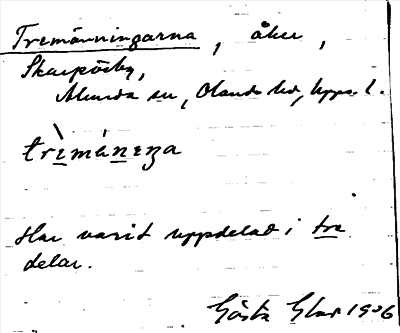 Tremänningarna, åker,
Skarpörby,
Alunda sn, Olands hd, Upps. l.
trìmä́neṇa
Har varit uppdelad i tre
delar.
Gösta 1906